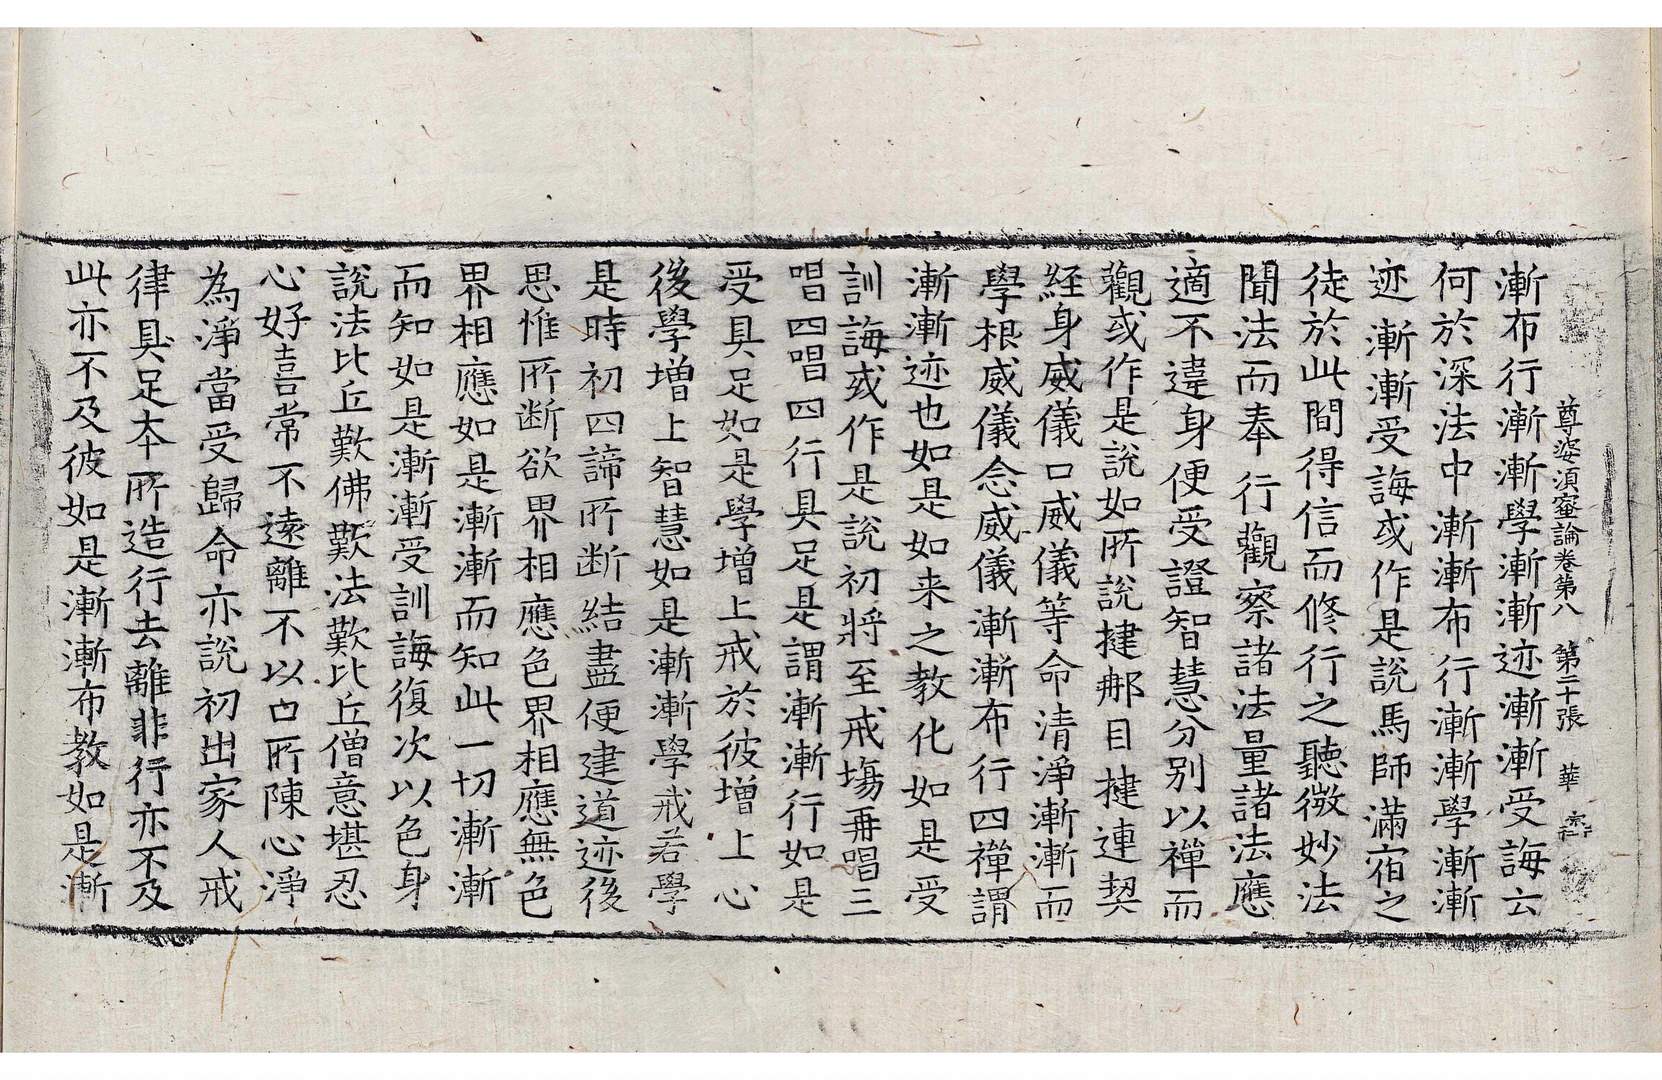 尊婆須蜜論卷第八　第二十張　華
漸布行漸漸學漸漸迹漸漸受誨云
何於深法中漸漸布行漸漸學漸漸
迹漸漸受誨或作是說馬師滿宿之
徒於此間得信而修行之聽微妙法
聞法而奉行觀察諸法量諸法應
適不違身便受證智慧分別以禪而
觀或作是說如所說揵郍目揵連契
経身威儀口威儀等命清淨漸漸而
學根威儀念威儀漸漸布行四禪謂
漸漸迹也如是如来之教化如是受
訓誨或作是說初將至戒場再唱三
唱四唱四行具足是謂漸漸行如是
受具足如是學增上戒於彼增上心
後學增上智慧如是漸漸學戒若學
是時初四諦所断結盡便建道迹後
思惟所断欲界相應色界相應無色
界相應如是漸漸而知此一切漸漸
而知如是漸漸受訓誨復次以色身
說法比丘歎佛歎法歎比丘僧意堪忍
心好喜常不遠離不以口所陳心淨
為淨當受歸命亦說初出家人戒
律具足夲所造行去離非行亦不及
此亦不及彼如是漸漸布教如是漸